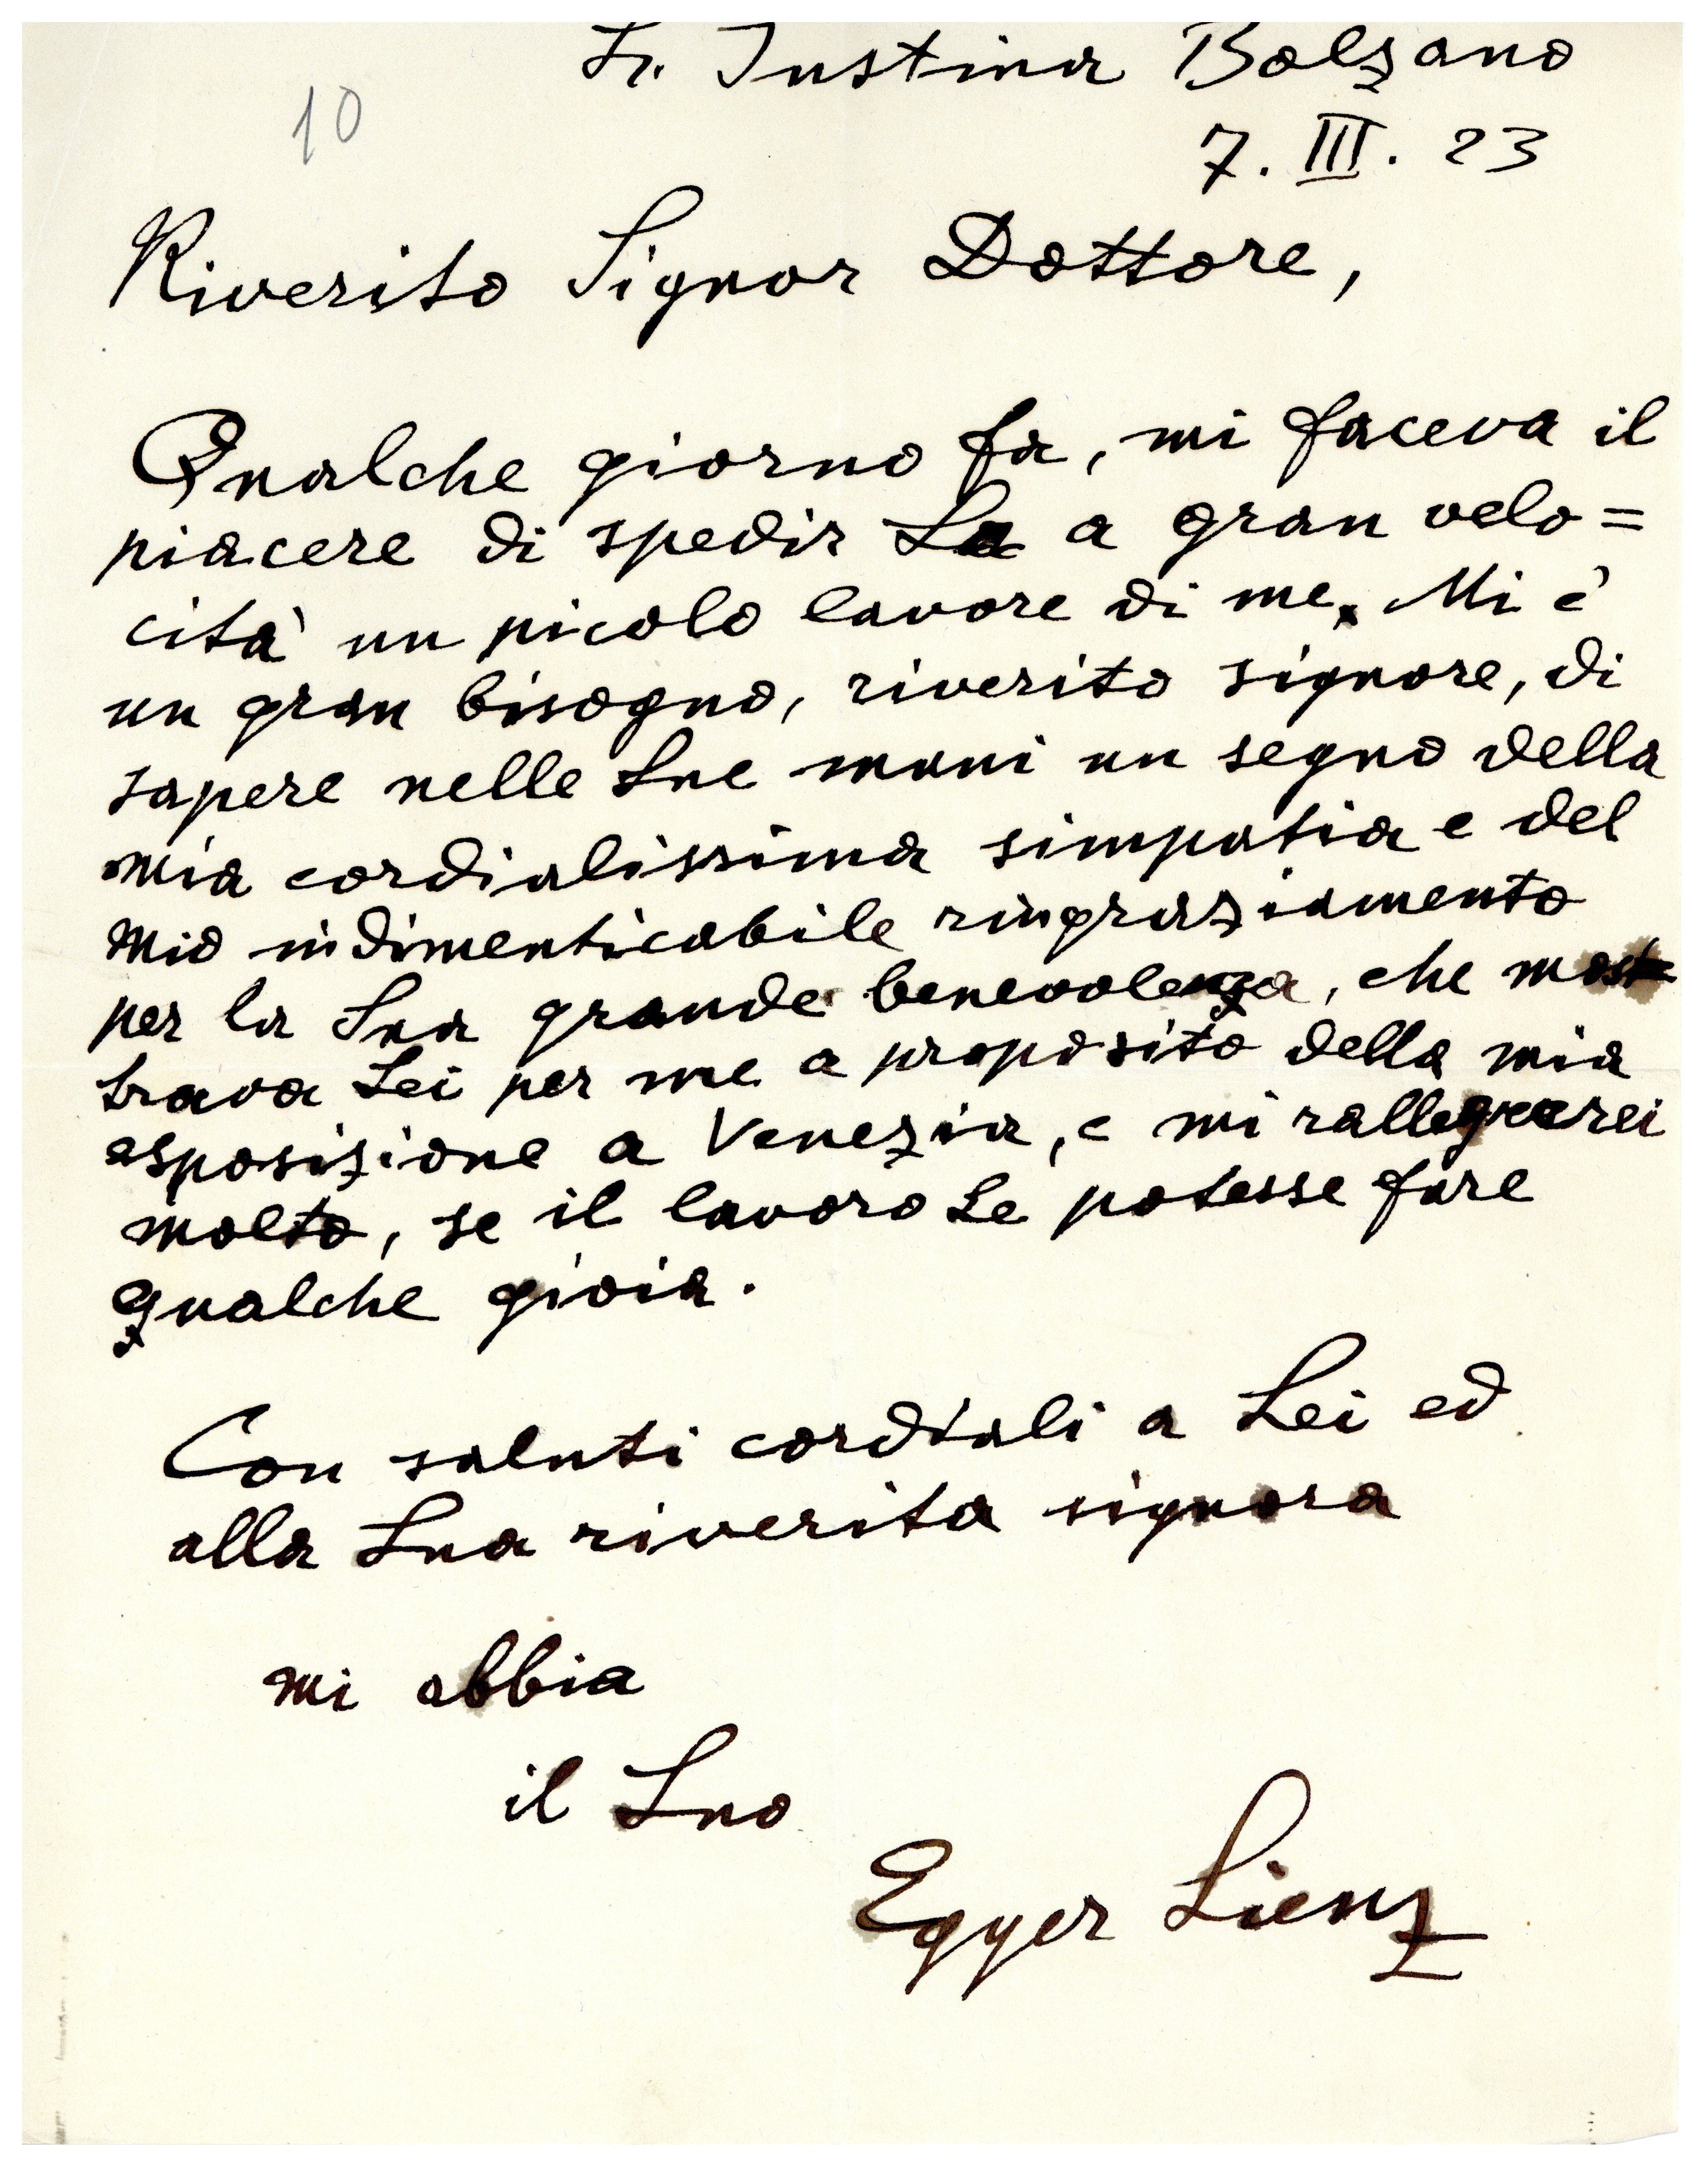 St. Justina Bolzano
10
7. III. 23
Riverito Signor Dottore,
Qualche giorno fa, mi faceva il
piacere di spedir La a gran velo=
cità un picolo lavore di me. Mi è
un gran bisogno, riverito signore, di
sapere nelle Sue mani un segno della
mia cordialissima simpatia e del
mio indimenticabile ringraziamento
per la Sua grande benevolenza, che most
trava Lei per me a proposito della mia
esposizione a Venezia, e mi rallegrerei
molto, se il lavoro Le potesse fare
qualche gioia.
Con saluti cordiali a Lei ed
alla Sua riverita signora
mi abbia
il Suo
Egger Lienz